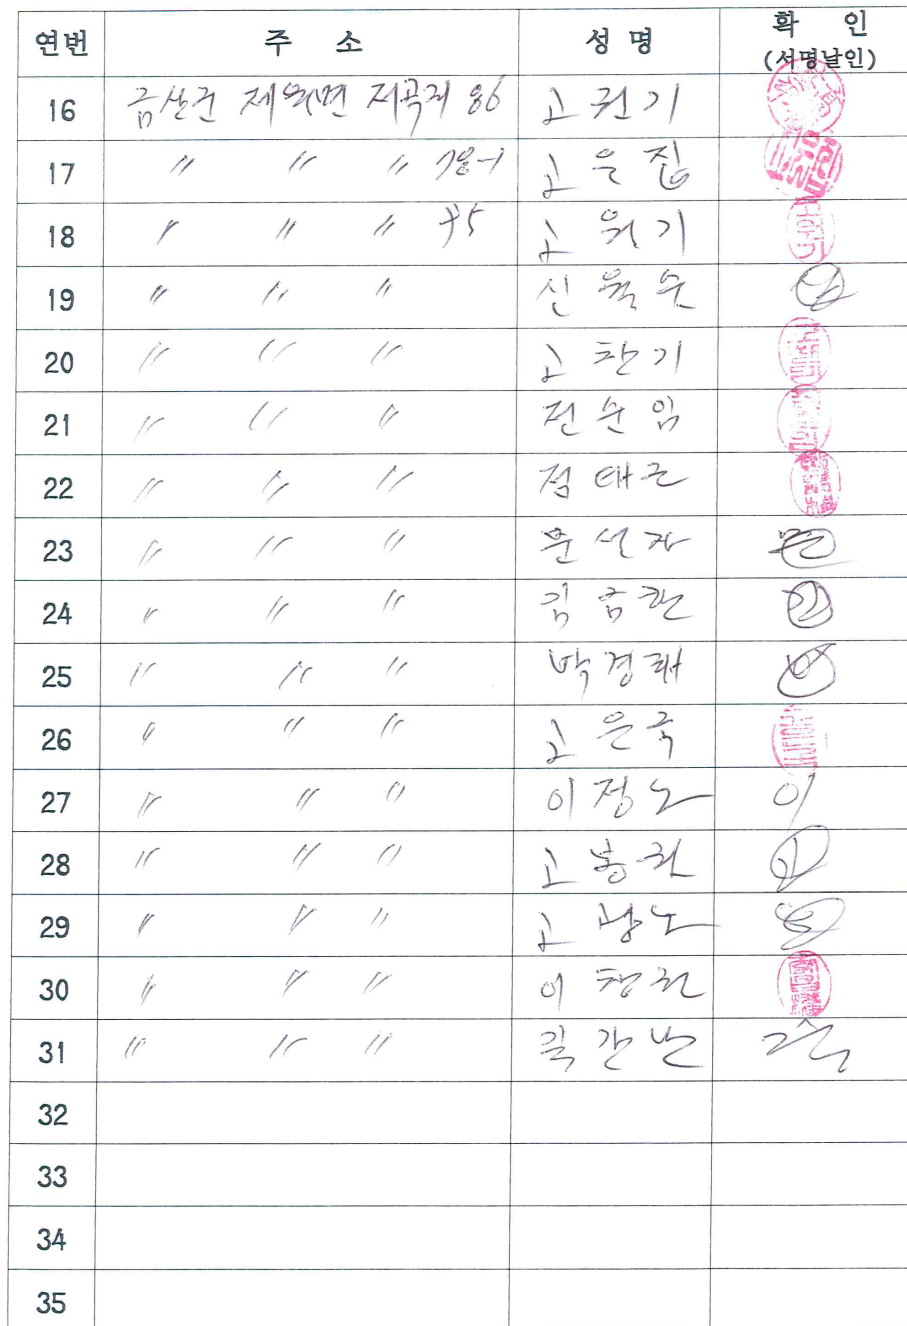 연번 주 소 성 명 확 인
(서명날인)
16 금산군 제원면 저곡리 86 고권기
17 〃 〃 〃 78-1 고은집
18 〃 〃 〃 75 고원기
19 〃 〃 〃 신옥순
20 〃 〃 〃 고찬기
21 〃 〃 〃 전순임
22 〃 〃 〃 정태근
23 〃 〃 〃 문선자
24 〃 〃 〃 김음전
25 〃 〃 〃 박경래
26 〃 〃 〃 고은국
27 〃 〃 〃 이정노 이
28 〃 〃 〃 고봉권
29 〃 〃 〃 고광노
30 〃 〃 〃 이형권
31 〃 〃 〃 길간난
32
33
34
35